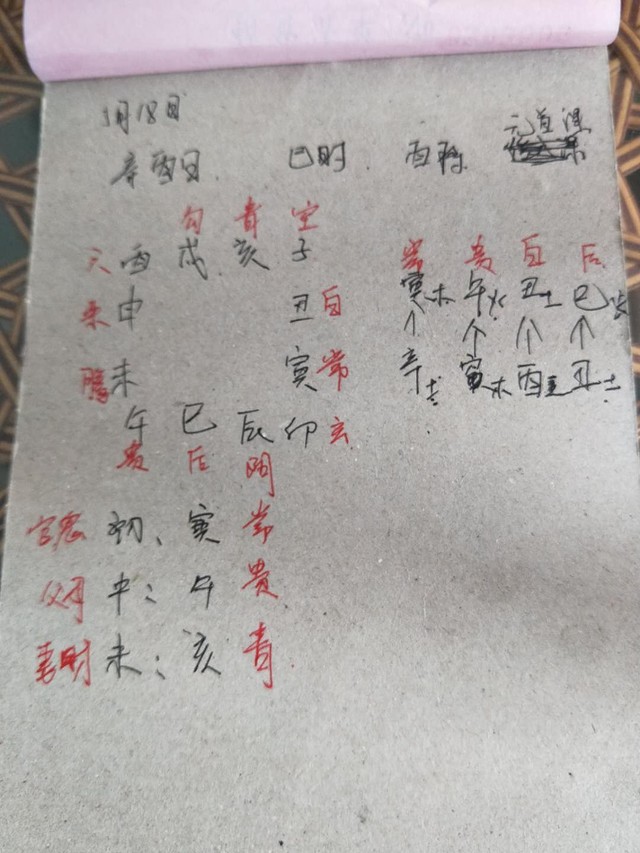 月18日
元首课
辛酉日 巳时 酉将
勾 青 空
天 酉 戌 亥 子 常 贵 白 后
朱 申 丑 白 寅木 午火 丑土 巳火
↑ ↑ ↑ ↑
螣 未 寅 常 辛 寅木 酉 丑土
午 巳 辰 卯 玄
贵 后 阴
初、寅 常
父母 中:午 贵
妻财 末:亥 青